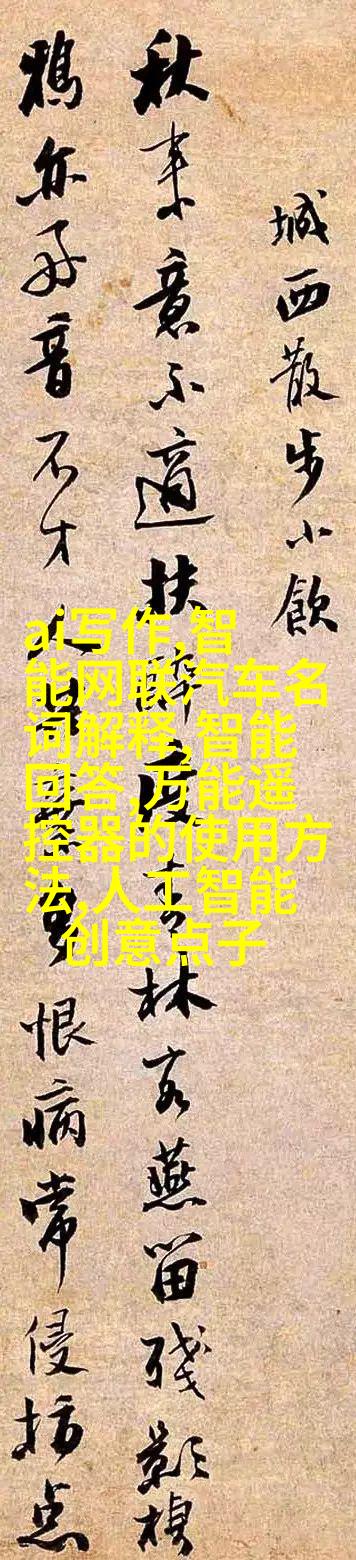 城西散步小飲
秋来意不適扶醉度青林客燕留殘影
鴉亦好音不才恨病常侵点
ai写作,智
能网联汽车名
词解释,智能
回答,万能遥
控器的使用方
法,人工智能
创意点子